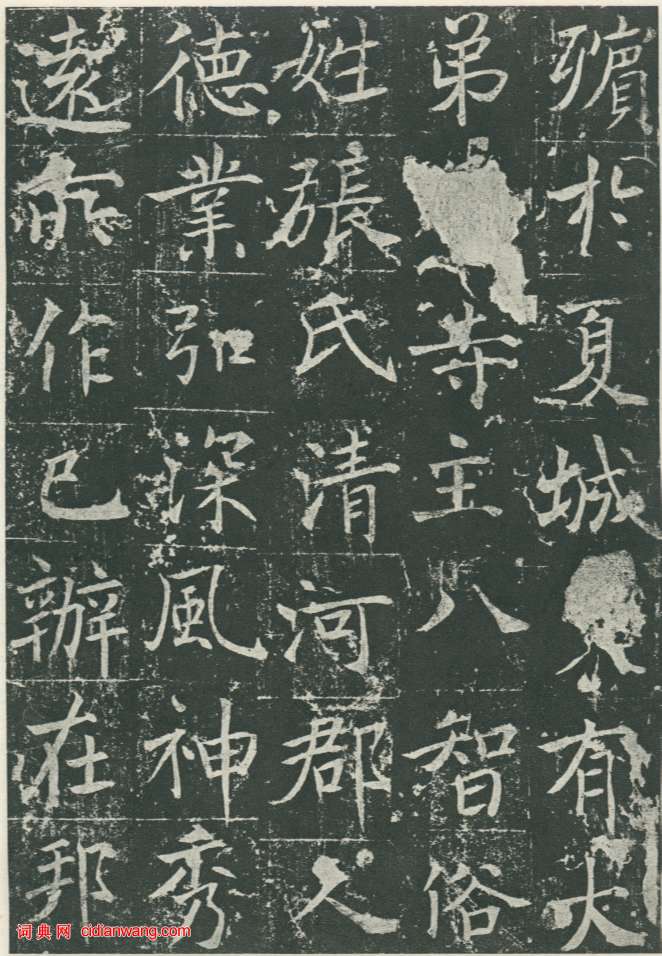 於夏城有大
弟寺主八智俗
姓張氏清河郡人
德業弘深風神秀
遠所作已辦在邦
词典网 cidianwang.com